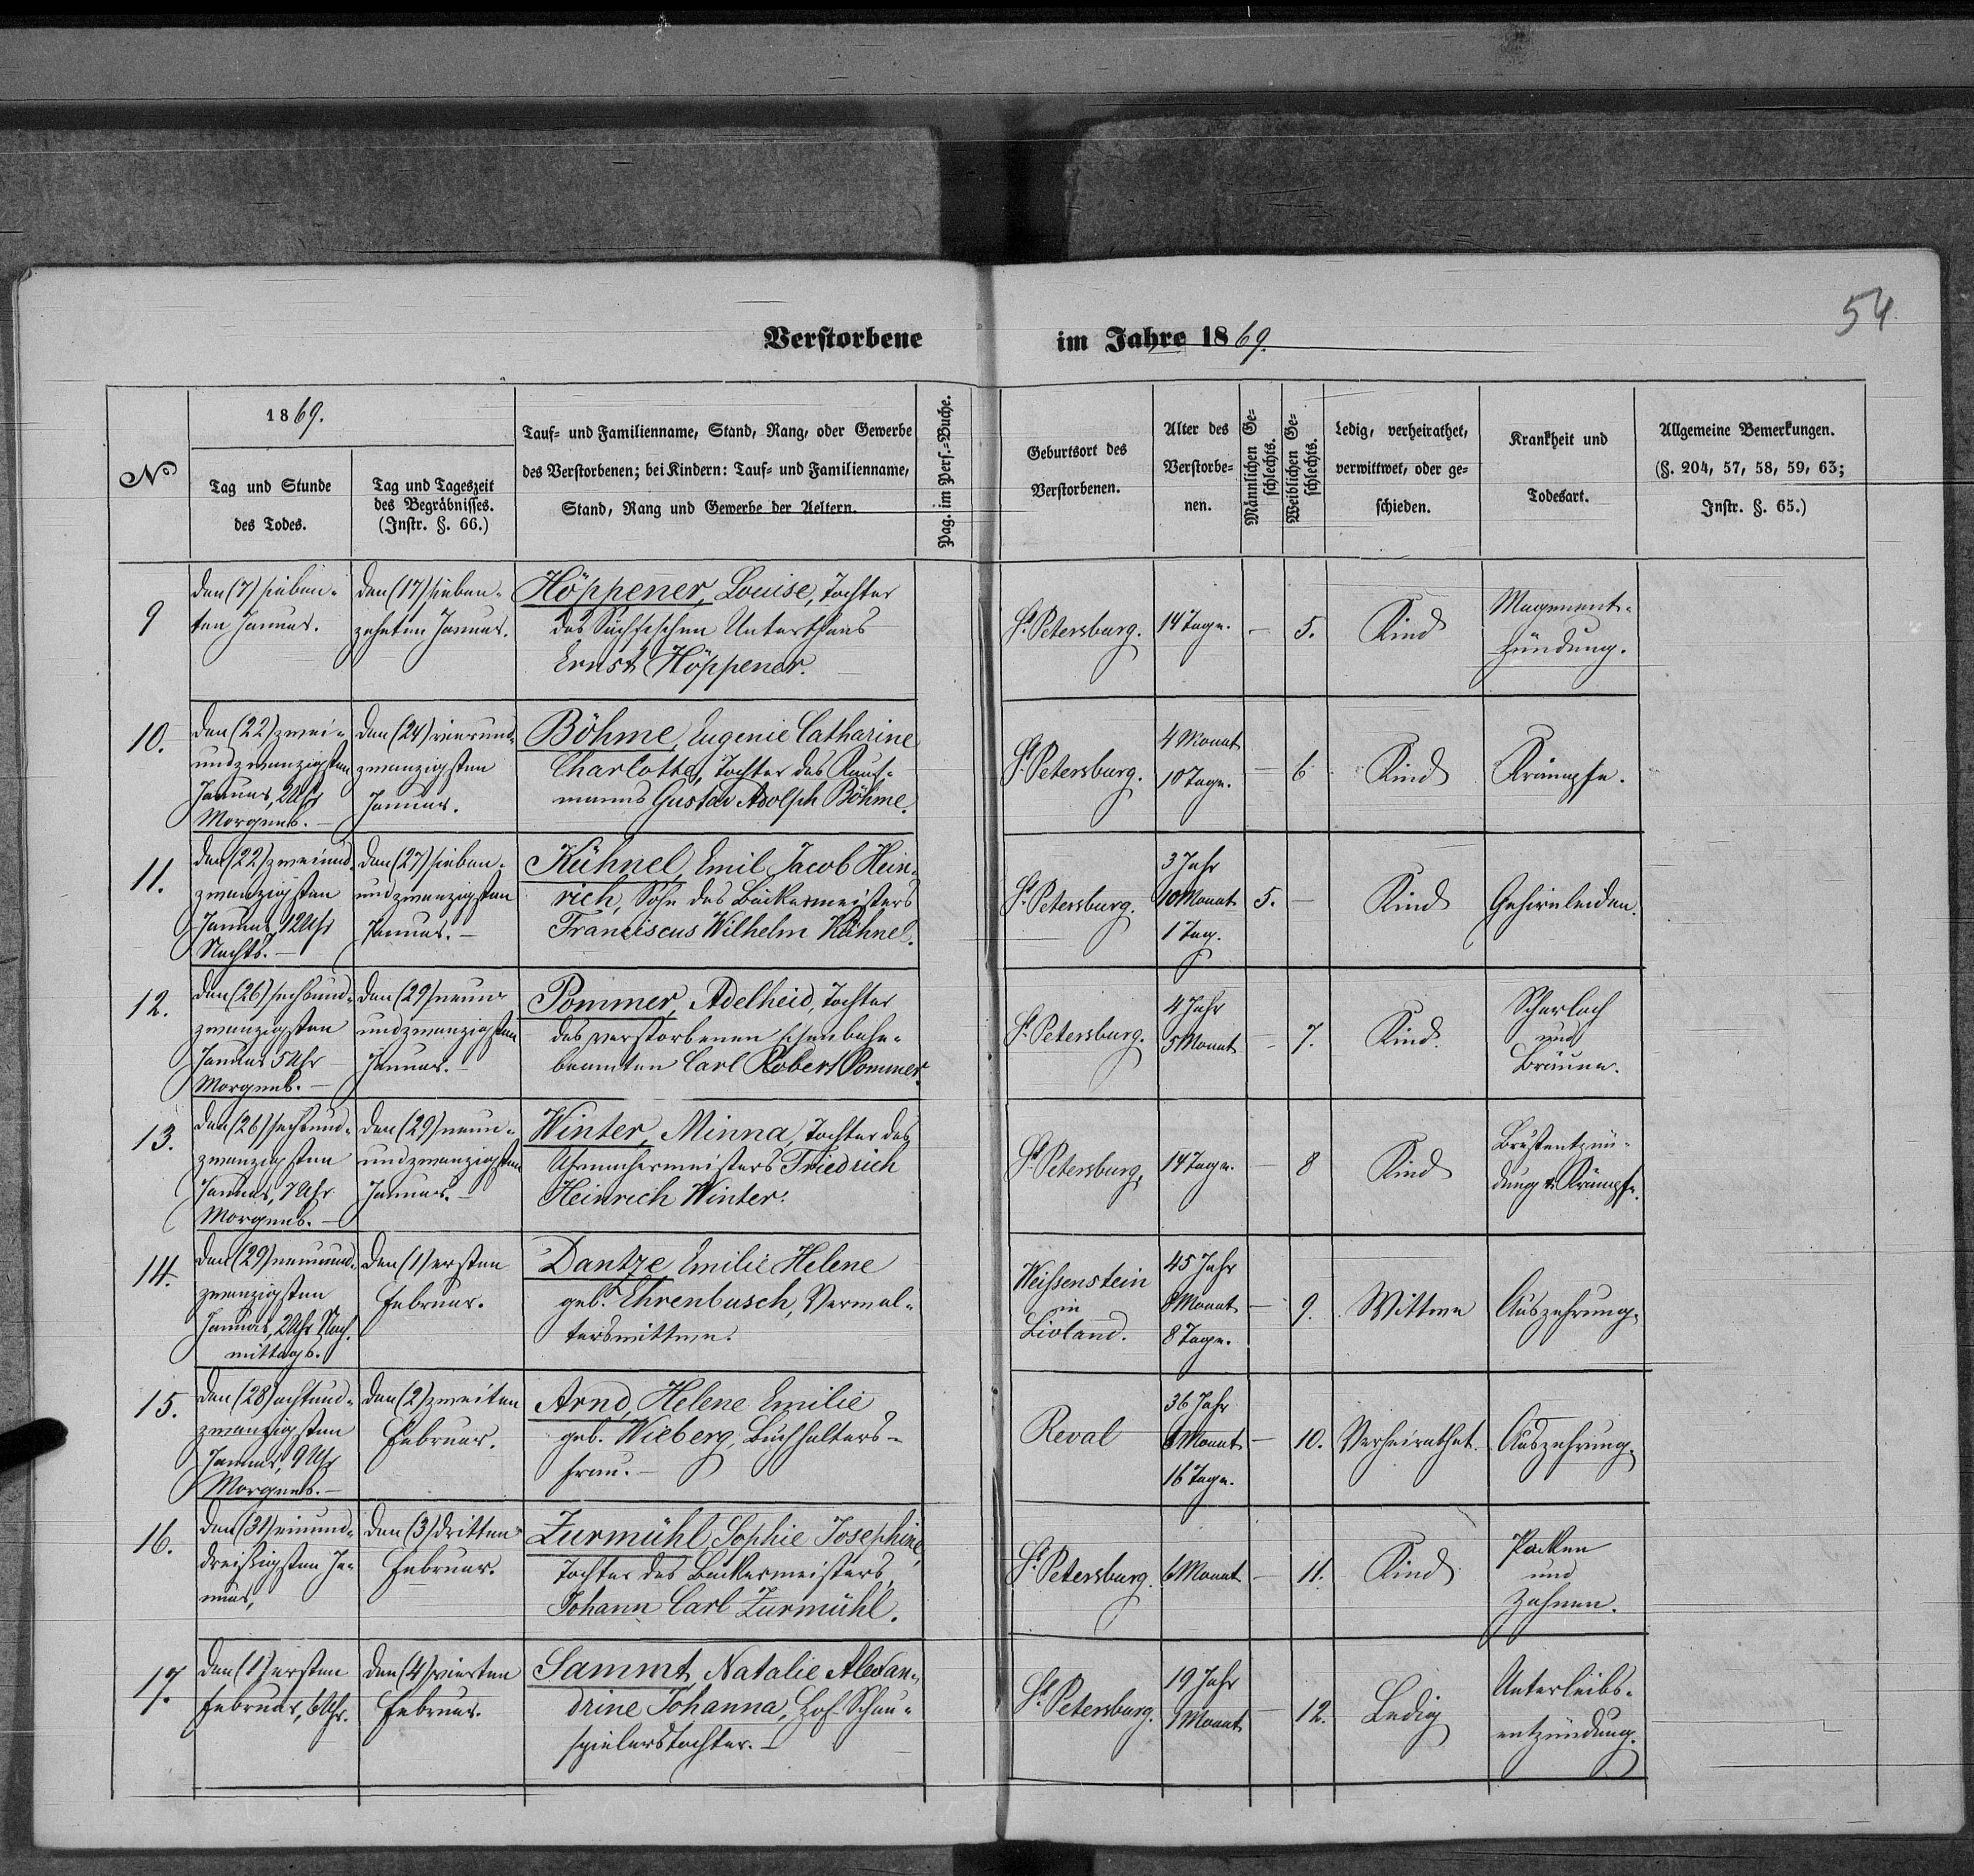 54
Verstorbene im Jahre 1869.
No
1869.
Tag und Stunde
des Todes.
Tag und Tageszeit
des Begräbnisses.
(Instr. §. 66.)
Tauf= und Familienname, Stand, Rang, oder Gewerbe
des Verstorbenen; bei Kindern: Tauf= und Familienname,
Stand, Rang und Gewerbe der Aeltern.
Pag. im Pers.=Buche.
Geburtsort des
Verstorbenen.
Alter des
Verstorbe=
nen.
Männlichen Ge=
schlechts.
Weiblichen Ge=
schlechts.
Ledig, verheirathet,
verwittwet, oder ge=
schieden.
Krankheit und
Todesart.
Allgemeine Bemerkungen.
(§. 204, 57, 58, 59, 63;
Instr. §. 65.)
9
den (7) sieben-
ten Januar.
den (17) sieben-
zehnten Januar.
Höppener, Louise, Tochter
des Sächsischen Unterthans
Ernst Höppener.
St. Petersburg.
14 Tage.
-
5.
Kind
Magenent-
zündung.
10.
den (22) zwei-
undzwanzigsten
Januar, 2 Uhr
Morgens. -
den (24) vierund-
zwanzigsten
Januar.
Böhme, Eugenie Catharine
Charlotte, Tochter des Kauf-
manns Gustav Adolph Böhme.
St. Petersburg.
4 Monat
10 Tage.
-
6
Kind
Krämpfe.
11.
den (22) zweiund-
zwanzigsten
Januar, 12 Uhr
Nachts. -
den (27) sieben-
undzwanzigsten
Januar. -
Kühnel, Emil Jacob Hein-
rich, Sohn des Bäckermeisters
Franciscus Wilhelm Kühnel.
St. Petersburg.
3 Jahr
10 Monat
1 Tag.
5.
-
Kind
Gehirnleiden.
12.
den (26) sechsund-
zwanzigsten
Januar 5 Uhr
Morgens. -
den (29) neun-
undzwanzigsten
Januar. -
Pommer, Adelheid, Tochter
des verstorbenen Eisenbahn-
beamten Carl Robert Pommer.
St. Petersburg.
4 Jahr
5 Monat
-
7.
Kind.
Scharlach
und
Bräune.
13.
den (26) sechsund-
zwanzigsten
Januar, 7 Uhr
Morgens. -
den (29) neun-
undzwanzigsten
Januar. -
Winter, Minna, Tochter des
Uhrmachermeisters Friedrich
Heinrich Winter.
St. Petersburg,
14 Tage.
-
8
Kind
Brustentzün-
dung u. Krämpfe.
14.
den (29) neunund-
zwanzigsten
Januar, 2 Uhr Nach-
mittags.
den (1) ersten
Februar.
Dantze Emilie Helene
geb. Ehrenbusch, Verwal-
terswittwe.
Weissenstein
in
Livland.
45 Jahr
8 Monat
8 Tage.
-
9.
Wittwe
Auszehrung.
15.
den (28) achtund-
zwanzigsten
Januar, 9 Uhr
Morgens. -
den (2) zweiten
Februar.
Arnd, Helene Emilie
geb. Wieberg, Buchhalters-
frau. -
Reval
36 Jahr
Monat
16 Tage.
-
10.
Verheirathet.
Auszehrung.
16.
den (31) einund-
dreissigsten Ja-
nuar,
den (3) dritten
Februar.
Zurmühl, Sophie Josephine,
Tochter des Bäckermeisters,
Johann Carl Zurmühl.
St. Petersburg.
6 Monat
-
11.
Kind
Pocken
und
Zahnen.
17.
den (1) ersten
Februar, 6 Uhr.
den (4) vierten
Februar.
Sammt, Natalie Alexan-
drine Johanna, Hof-Schau-
spielerstochter. -
St. Petersburg.
19 Jahr
Monat
-
12.
Ledig
Unterleibs-
entzündung.